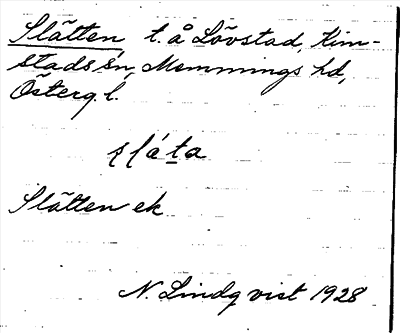 Slätten t. å Lövstad, Kim-
stads sn, Memmings hd,
Österg. l.
slá̱ta
Slätten ek
N. Lindqvist 1928